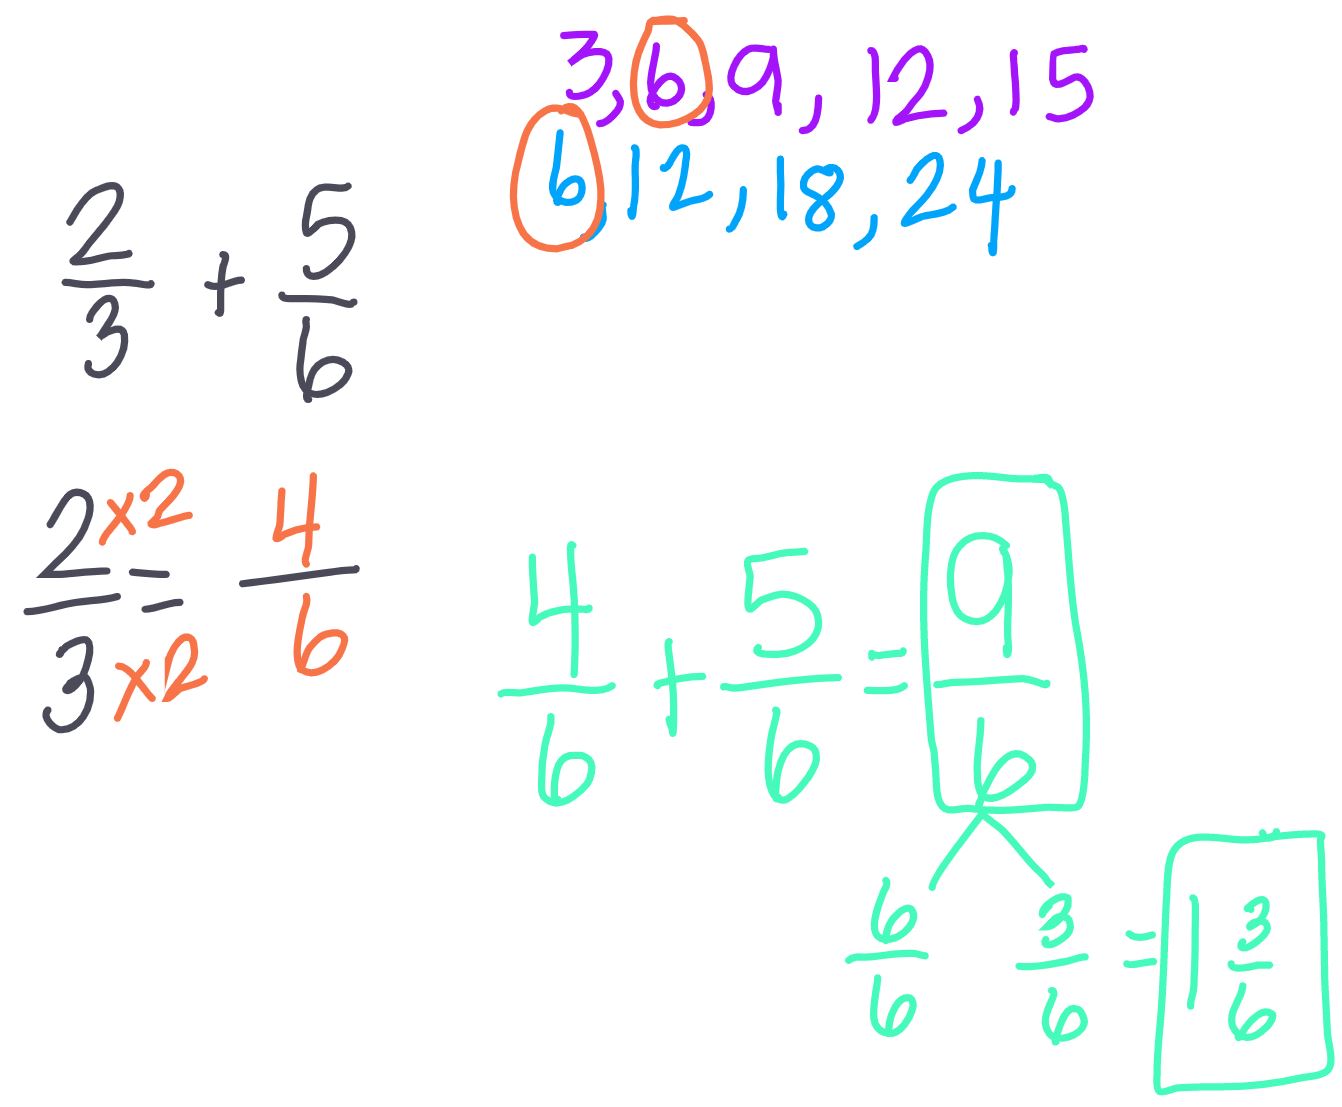 3, 6, 9, 12, 15
6, 12, 18, 24
2/3 + 5/6
2×2/3×2 = 4/6
4/6 + 5/6 = 9/6
6/6 3/6 = 1 3/6